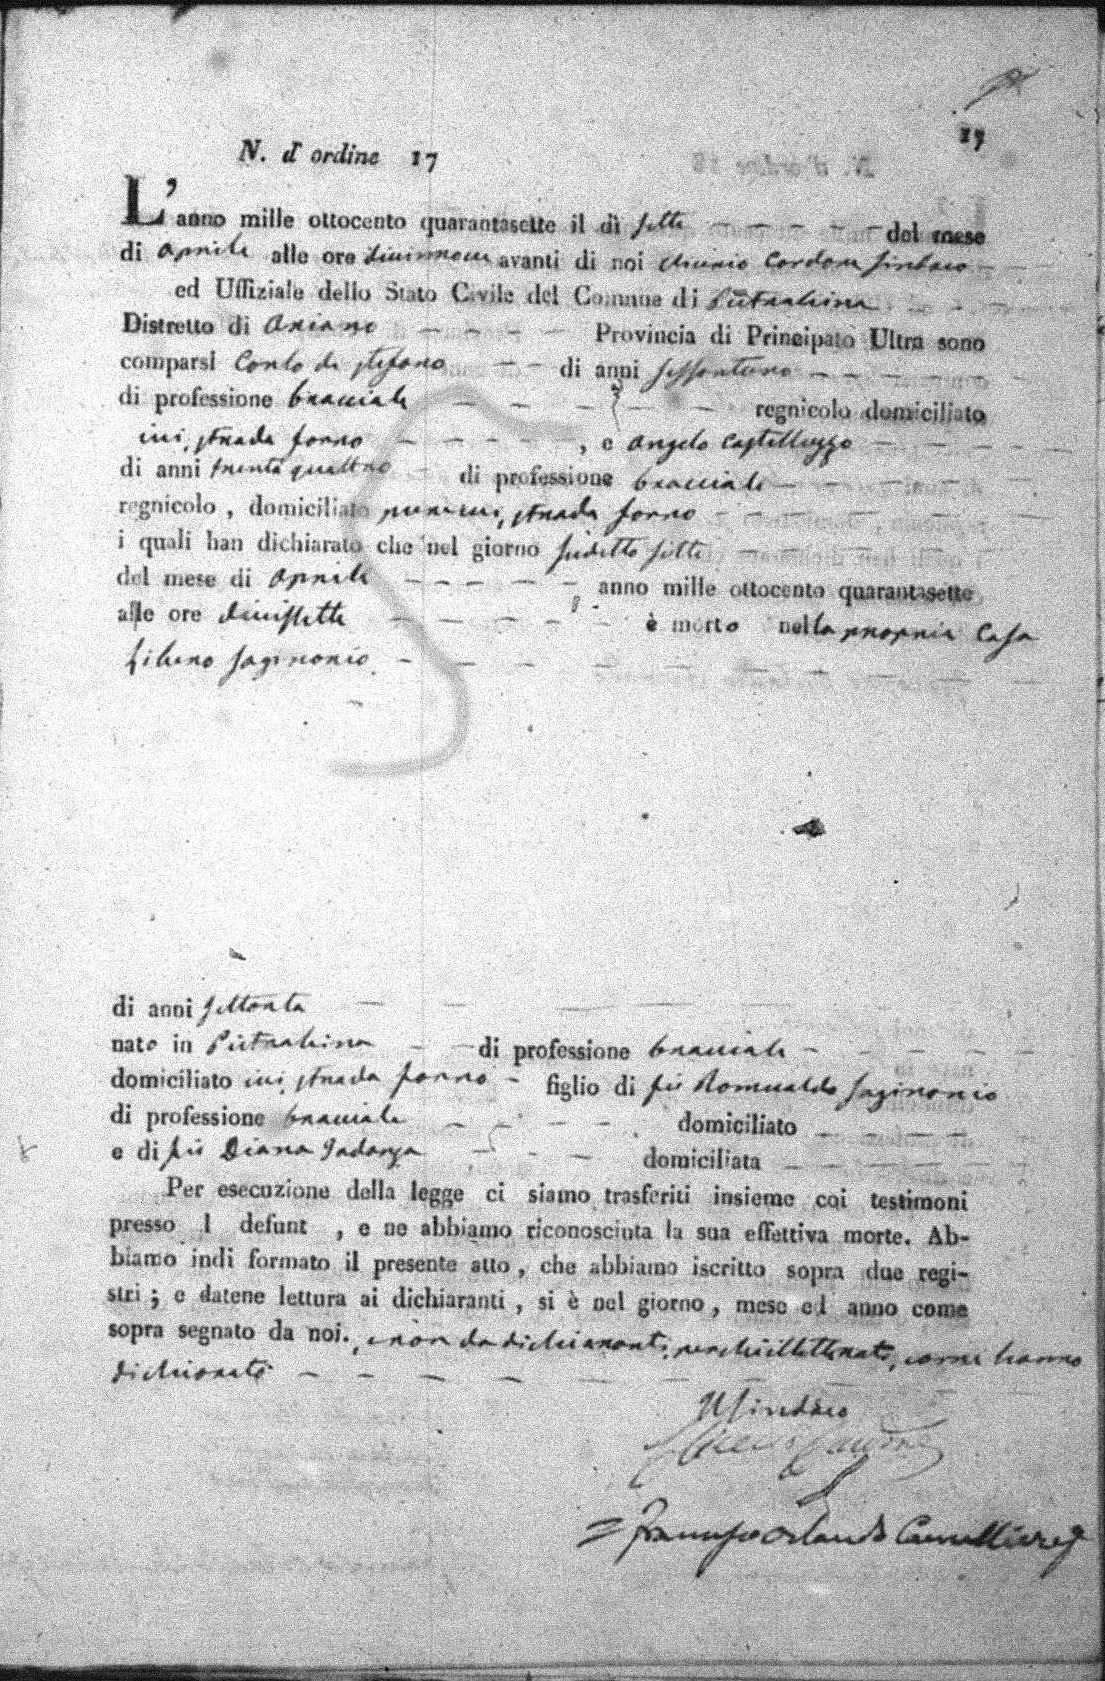 17
N. d' ordine 17
L'anno mille ottocento quarantasette il dì sette del mese
di Aprile alle ore diecinnove avanti di noi Cordone Sindaco
ed Uffiziale dello Stato Civile del Comune di Pietrelcina
Distretto di Ariano Provincia di Principato Ultra sono
comparsi Carlo de Stefano di anni sessantuno
di professione bracciale regnicolo domiciliato
ivi, strada forno , e Angelo Castelluzzo
di anni trenta quattro di professione bracciale
regnicolo , domiciliato pure ivi, strada forno
i quali han dichiarato che nel giorno sudetto sette
del mese di Aprile anno mille ottocento quarantasette
alle ore diecissette è morto nella propria Casa
Libero Saginario
di anni settanta
nato in Pietrelcina di professione bracciale
domiciliato ivi strada forno figlio di fu Romualdo Saginario
di professione bracciale domiciliato
e di fu Diana Iadanza domiciliata
Per esecuzione della legge ci siamo trasferiti insieme coi testimoni
presso l defunt , e ne abbiamo riconosciuta la sua effettiva morte. Ab-
biamo indi formato il presente atto , che abbiamo iscritto sopra due regi-
stri ; e datene lettura ai dichiaranti , si è nel giorno , mese ed anno come
sopra segnato da noi. , e non da dichiaranti, perché illetterati, come hanno
dichiarato
Il Sindaco
Cordone
Orlando Cancelliere